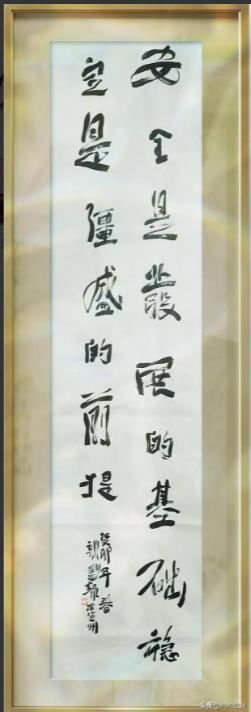 安全是發展的基础穩
定是彊盛的前提
癸卯年春